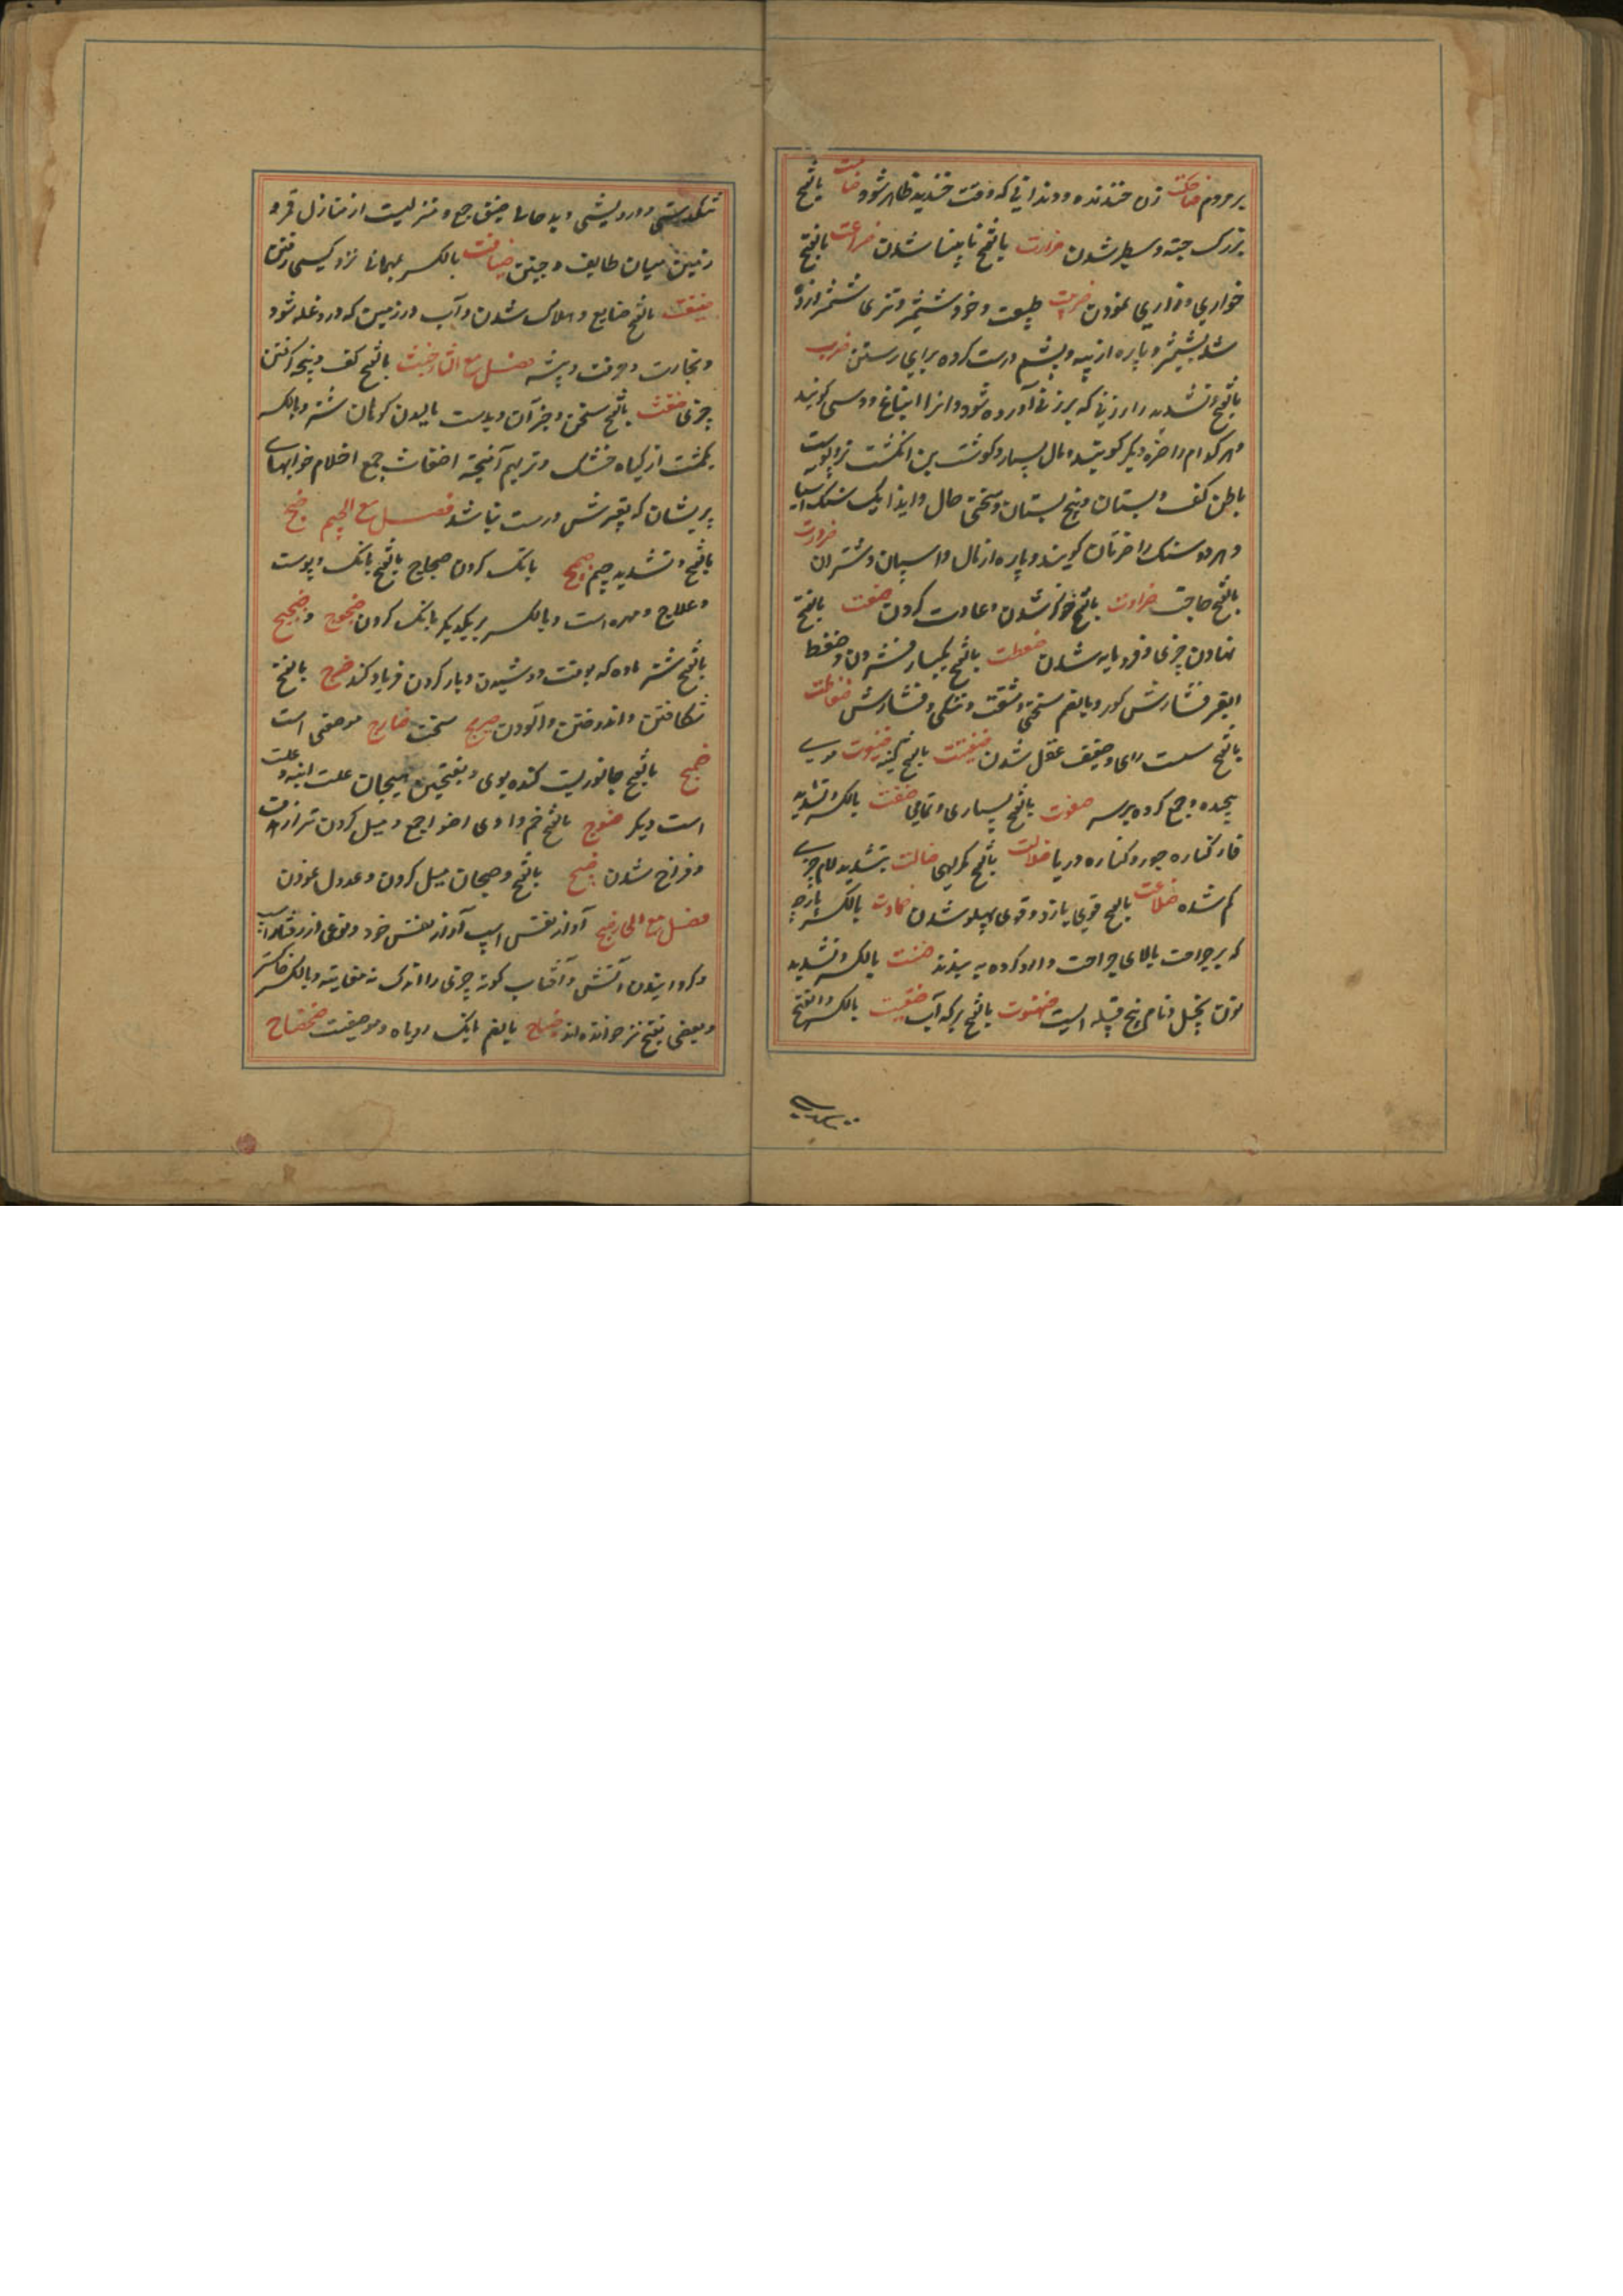 بر مردم ضاحکت زن خندنده و دندانی که وقت خندیدن ظاهر شود ضخامت بالفتح
بزرک جثه و سطبر شدن ضرارت بالفتح نابینا شدن ضراعت بالفتح
خواری و زاری نمودن ضریبت طبیعت و خو و شمشیر و تیزی شمشیر و زده
شده بشمشیر و پاره از پنبه و پشم درست کرده برای رستن ضرت
بالفتح و تشدید را زنی که بر زنی آورده شود و انرا انباغ و وسنی کویند
و هر کدام را ضره دیکر کویند و مال بسیار و کوشت بن انکشت نر و کوشت
باطن کف و بستان و بیخ بستان و سختی حال و ایذا و یک سنک آسیا
و هر دو سنک را ضرتان کویند و پاره از مال و اسپان و شتران ضرورت
بالفتح حاجت ضراوت بالفتح خوکر شدن و عادت کردن ضعت بالفتح
نهادن چیزی و فرومایه شدن ضغطت بالفتح یکبار فشردن و ضغط
القبر فشارش کور و بالضم سختی و مشقت و تنکی و فشارش ضفاطت
بالفتح سست رای و ضعیف عقل شدن ضغینت بالفتح کینه ضفیرت موی
پیچیده و جمع کرده بر سر ضفوت بالفتح بسیاری و تمامی ضفت بالکسر و تشدید
فا کناره جو و کناره دریا ضلالت بالفتح کمراهی ضالت بتشدید لام چیزی
کم شده ضلاعت بالفتح قوی بازو و قوی پهلو شدن ضمادت بالکسر پارچه
که بر جراحت بالای جراحت و دارو کرده بندند ضنت بالکسر و تشدید
نون بخل و نام پنج قبیله است ضهوت بالفتح برکه آب ضیقت بالکسر و الفتح
تنکدستی و درویشی و بد حالی ضیق جمع و منزلیست از منازل قمر و
زمین میان طایف و حنین ضیافت بالکسر مهمان نزد کسی رفتن
ضیعت بالفتح ضایع و هلاک شدن و آب و زمین که درو غله شود
و تجارت و حرفت و پیشه فصل مع الثاء ضبث بالفتح کف و پنجه کرفتن
چیزی ضغث بالفتح سخن و جز آن و بدست مالیدن کوهان شتر و بالکسر
یکمشت از کیاه خشک و تر بهم آمیخته اضغاث جمع احلام خوابهای
پریشان که تعبیرش درست نباشد فصل مع الجیم ضج
بالفتح و تشدید جیم ضجیج بانک کردن ضجاج بالفتح بانک و پوست
و علاج و مهره است و بالکسر بر یکدیکر بانک کردن ضجوج و ضجیج
بالفتح شتر ماده که بوقت دوشیدن و بار کردن فریاد کند ضرج بالفتح
شکافتن و انداختن و آلودن ضریج سخت ضارج موضعی است
ضمج بالفتح جانوریست کنده بوی و بفتحین هیجان علت ابنه و علت
است دیکر ضوج بالفتح خم وادی اضواج جمع و میل کردن تیر از هدف
و فراخ شدن ضیج بالفتح و ضیجان میل کردن و عدول نمودن
فصل مع الحاء ضبح آواز نفس اسپ آواز نفس خود و نوعی از رفتار اسپ
و کردانیدن آتش و آفتاب کونه چیزی را اندک نه بغایته و بالکسر خاکستر
و بعضی بفتح نیز خوانده اند ضباح بالضم بانک روباه و موضعیست ضحضاح